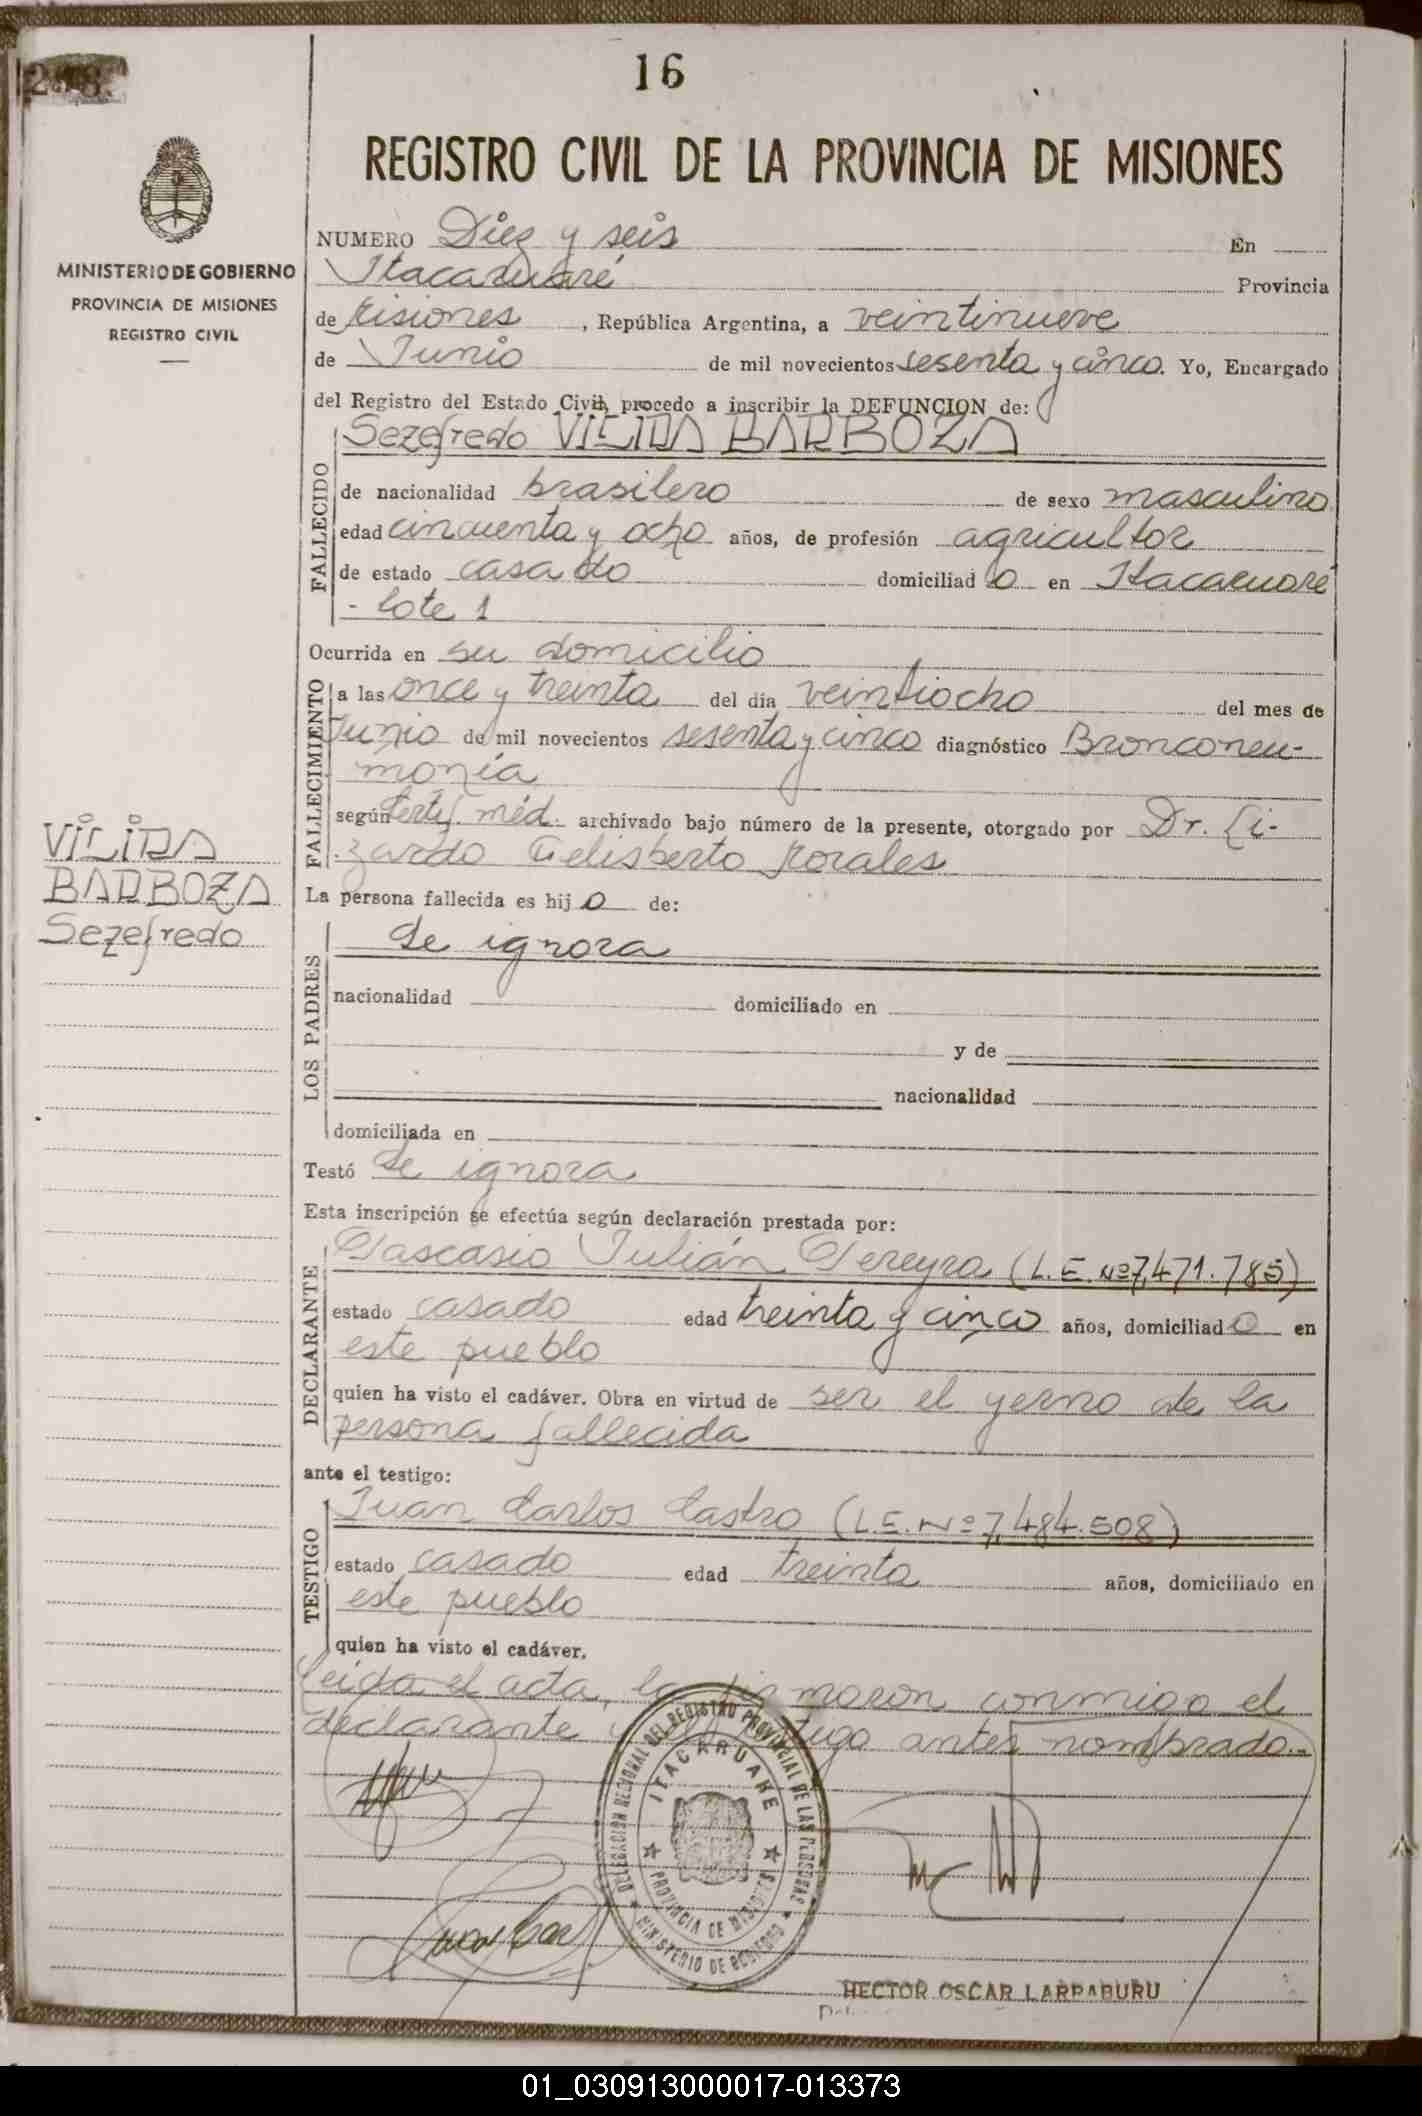 16
REGISTRO CIVIL DE LA PROVINCIA DE MISIONES
MINISTERIO DE GOBIERNO
PROVINCIA DE MISIONES
REGISTRO CIVIL
NUMERO Diez y seis En
Itacaruaré Provincia
de Misiones, República Argentina, a veintinueve
de Junio de mil novecientos sesenta y cinco. Yo, Encargado
del Registro del Estado Civil, procedo a inscribir la DEFUNCION de:
Sezefredo VILIDA BARBOZA
FALLECIDO
de nacionalidad brasilero de sexo masculino
edad cincuenta y ocho años, de profesión agricultor
de estado casado domiciliado en Itacaruaré
- lote 1
Ocurrida en su domicilio
FALLECIMIENTO
a las once y treinta del día veintiocho del mes de
Junio de mil novecientos sesenta y cinco diagnóstico Bronconeu-
monía
según Certif. méd. archivado bajo número de la presente, otorgado por Dr. Li-
zardo Gelisberto Morales
VILIDA
BARBOZA
Sezefredo
La persona fallecida es hijo de:
LOS PADRES
Se ignora
nacionalidad domiciliado en
y de
nacionalidad
domiciliada en
Testó Se ignora
Esta inscripción se efectúa según declaración prestada por:
DECLARANTE
Pascasio Julián Pereyra (L.E. Nº 7,471.785)
estado casado edad treinta y cinco años, domiciliado en
este pueblo
quien ha visto el cadáver. Obra en virtud de ser el yerno de la
persona fallecida
ante el testigo:
TESTIGO
Juan Carlos Castro (L.E. Nº 7,484.508)
estado casado edad treinta años, domiciliado en
este pueblo
quien ha visto el cadáver.
Leída el acta, la firmaron conmigo el
declarante y el testigo antes nombrado.-
DELEGACION REGIONAL DEL REGISTRO PROVINCIAL DE LAS PERSONAS
ITACARUARE
PROVINCIA DE MISIONES
MINISTERIO DE GOBIERNO
HECTOR OSCAR LARRABURU
01_030913000017-013373